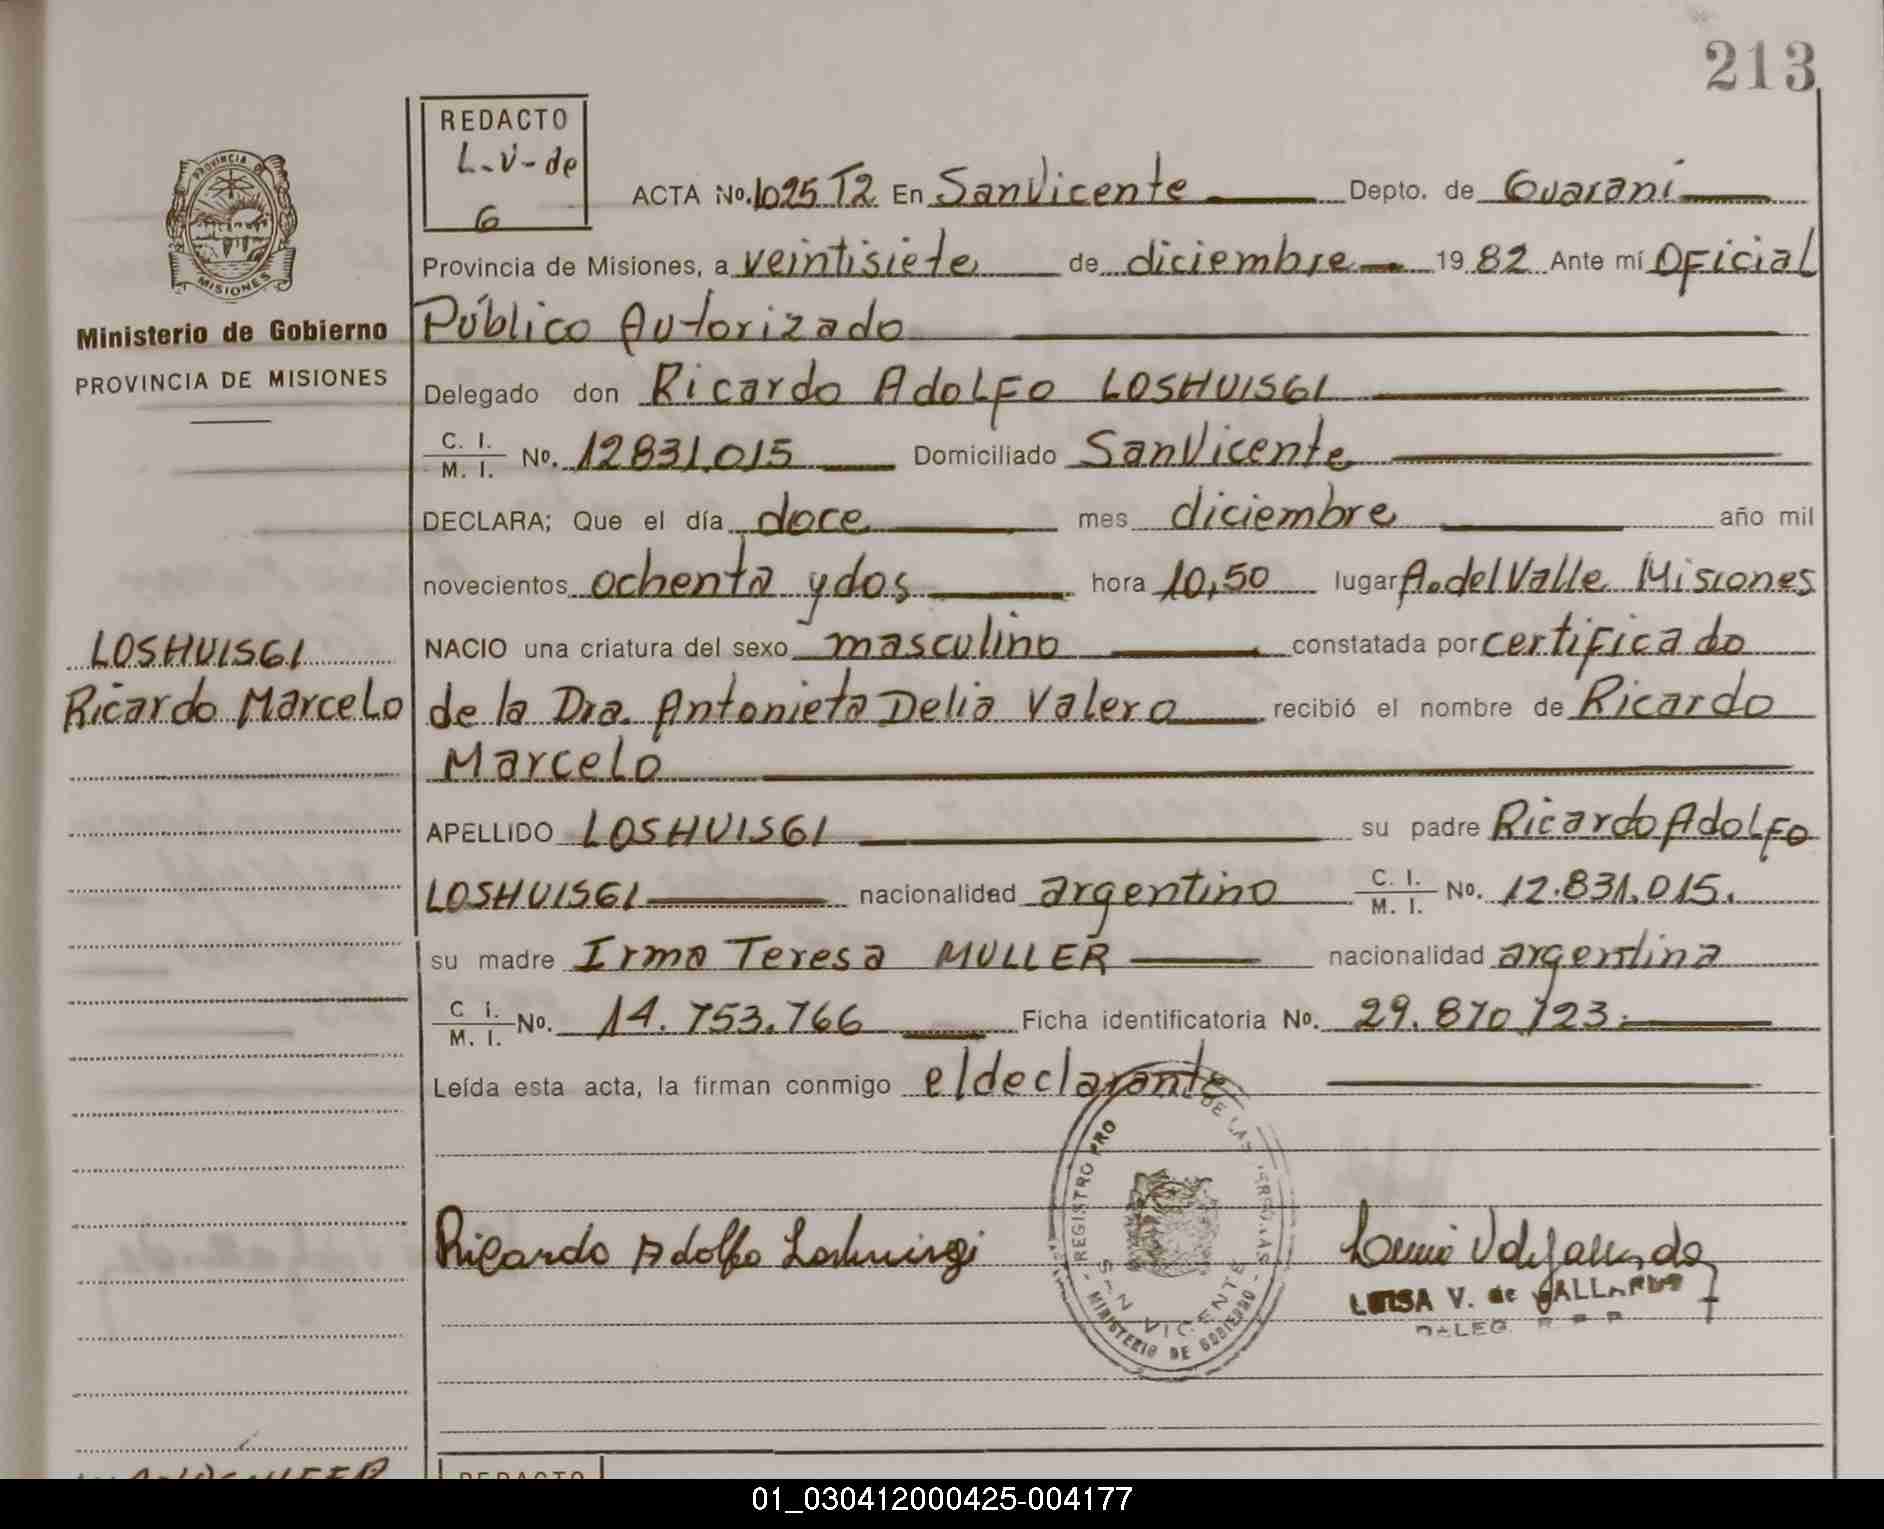 213
REDACTO
L-V-de
G
ACTA No. 1025 T2 En San Vicente Depto. de Guaraní
Provincia de Misiones, a veintisiete de diciembre 1982 Ante mí Oficial
Público Autorizado
Delegado don Ricardo Adolfo LOSHUISGI
C. I. / M. I. No. 12831.015 Domiciliado San Vicente
DECLARA; Que el día doce mes diciembre año mil
novecientos ochenta y dos hora 10,50 lugar A. del Valle Misiones
NACIO una criatura del sexo masculino constatada por certificado
de la Dra. Antonieta Delia Valero recibió el nombre de Ricardo
Marcelo
APELLIDO LOSHUISGI su padre Ricardo Adolfo
LOSHUISGI nacionalidad argentino C. I. / M. I. No. 12.831.015.
su madre Irma Teresa MULLER nacionalidad argentina
C I. / M. I. No. 14.753.766 Ficha identificatoria No. 29.870.723.
Leída esta acta, la firman conmigo el declarante
Ricardo Adolfo Loshuisgi
LUISA V. de GALLARDO
DELEG. R P P
PROVINCIA DE MISIONES
Ministerio de Gobierno
PROVINCIA DE MISIONES
LOSHUISGI
Ricardo Marcelo
REGISTRO PRO DE LAS PERSONAS
SAN VICENTE
MINISTERIO DE GOBIERNO
REDACTO
01_030412000425-004177